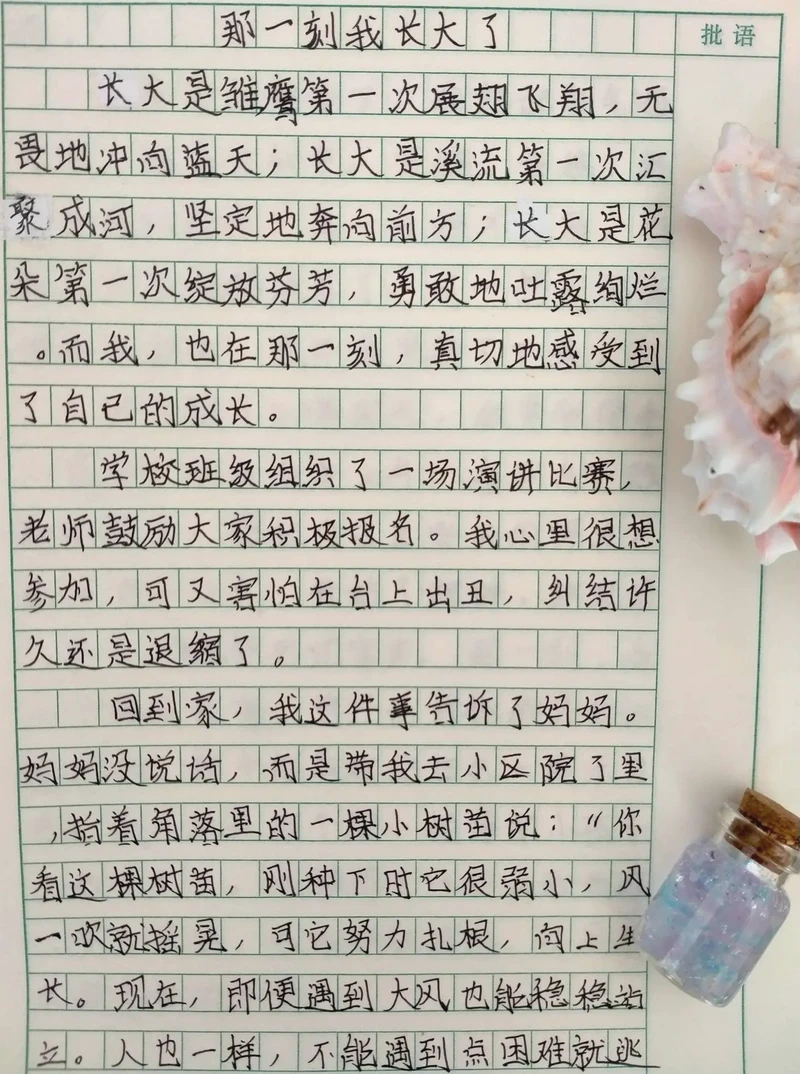 那一刻我长大了
批语
长大是雏鹰第一次展翅飞翔，无
畏地冲向蓝天；长大是溪流第一次汇
聚成河，坚定地奔向前方；长大是花
朵第一次绽放芬芳，勇敢地吐露绚烂
。而我，也在那一刻，真切地感受到
了自己的成长。
学校班级组织了一场演讲比赛，
老师鼓励大家积极报名。我心里很想
参加，可又害怕在台上出丑，纠结许
久还是退缩了。
回到家，我这件事告诉了妈妈。
妈妈没说话，而是带我去小区院了里
，指着角落里的一棵小树苗说：“你
看这棵树苗，刚种下时它很弱小，风
一吹就摇晃，可它努力扎根，向上生
长。现在，即便遇到大风也能稳稳站
立。人也一样，不能遇到点困难就逃